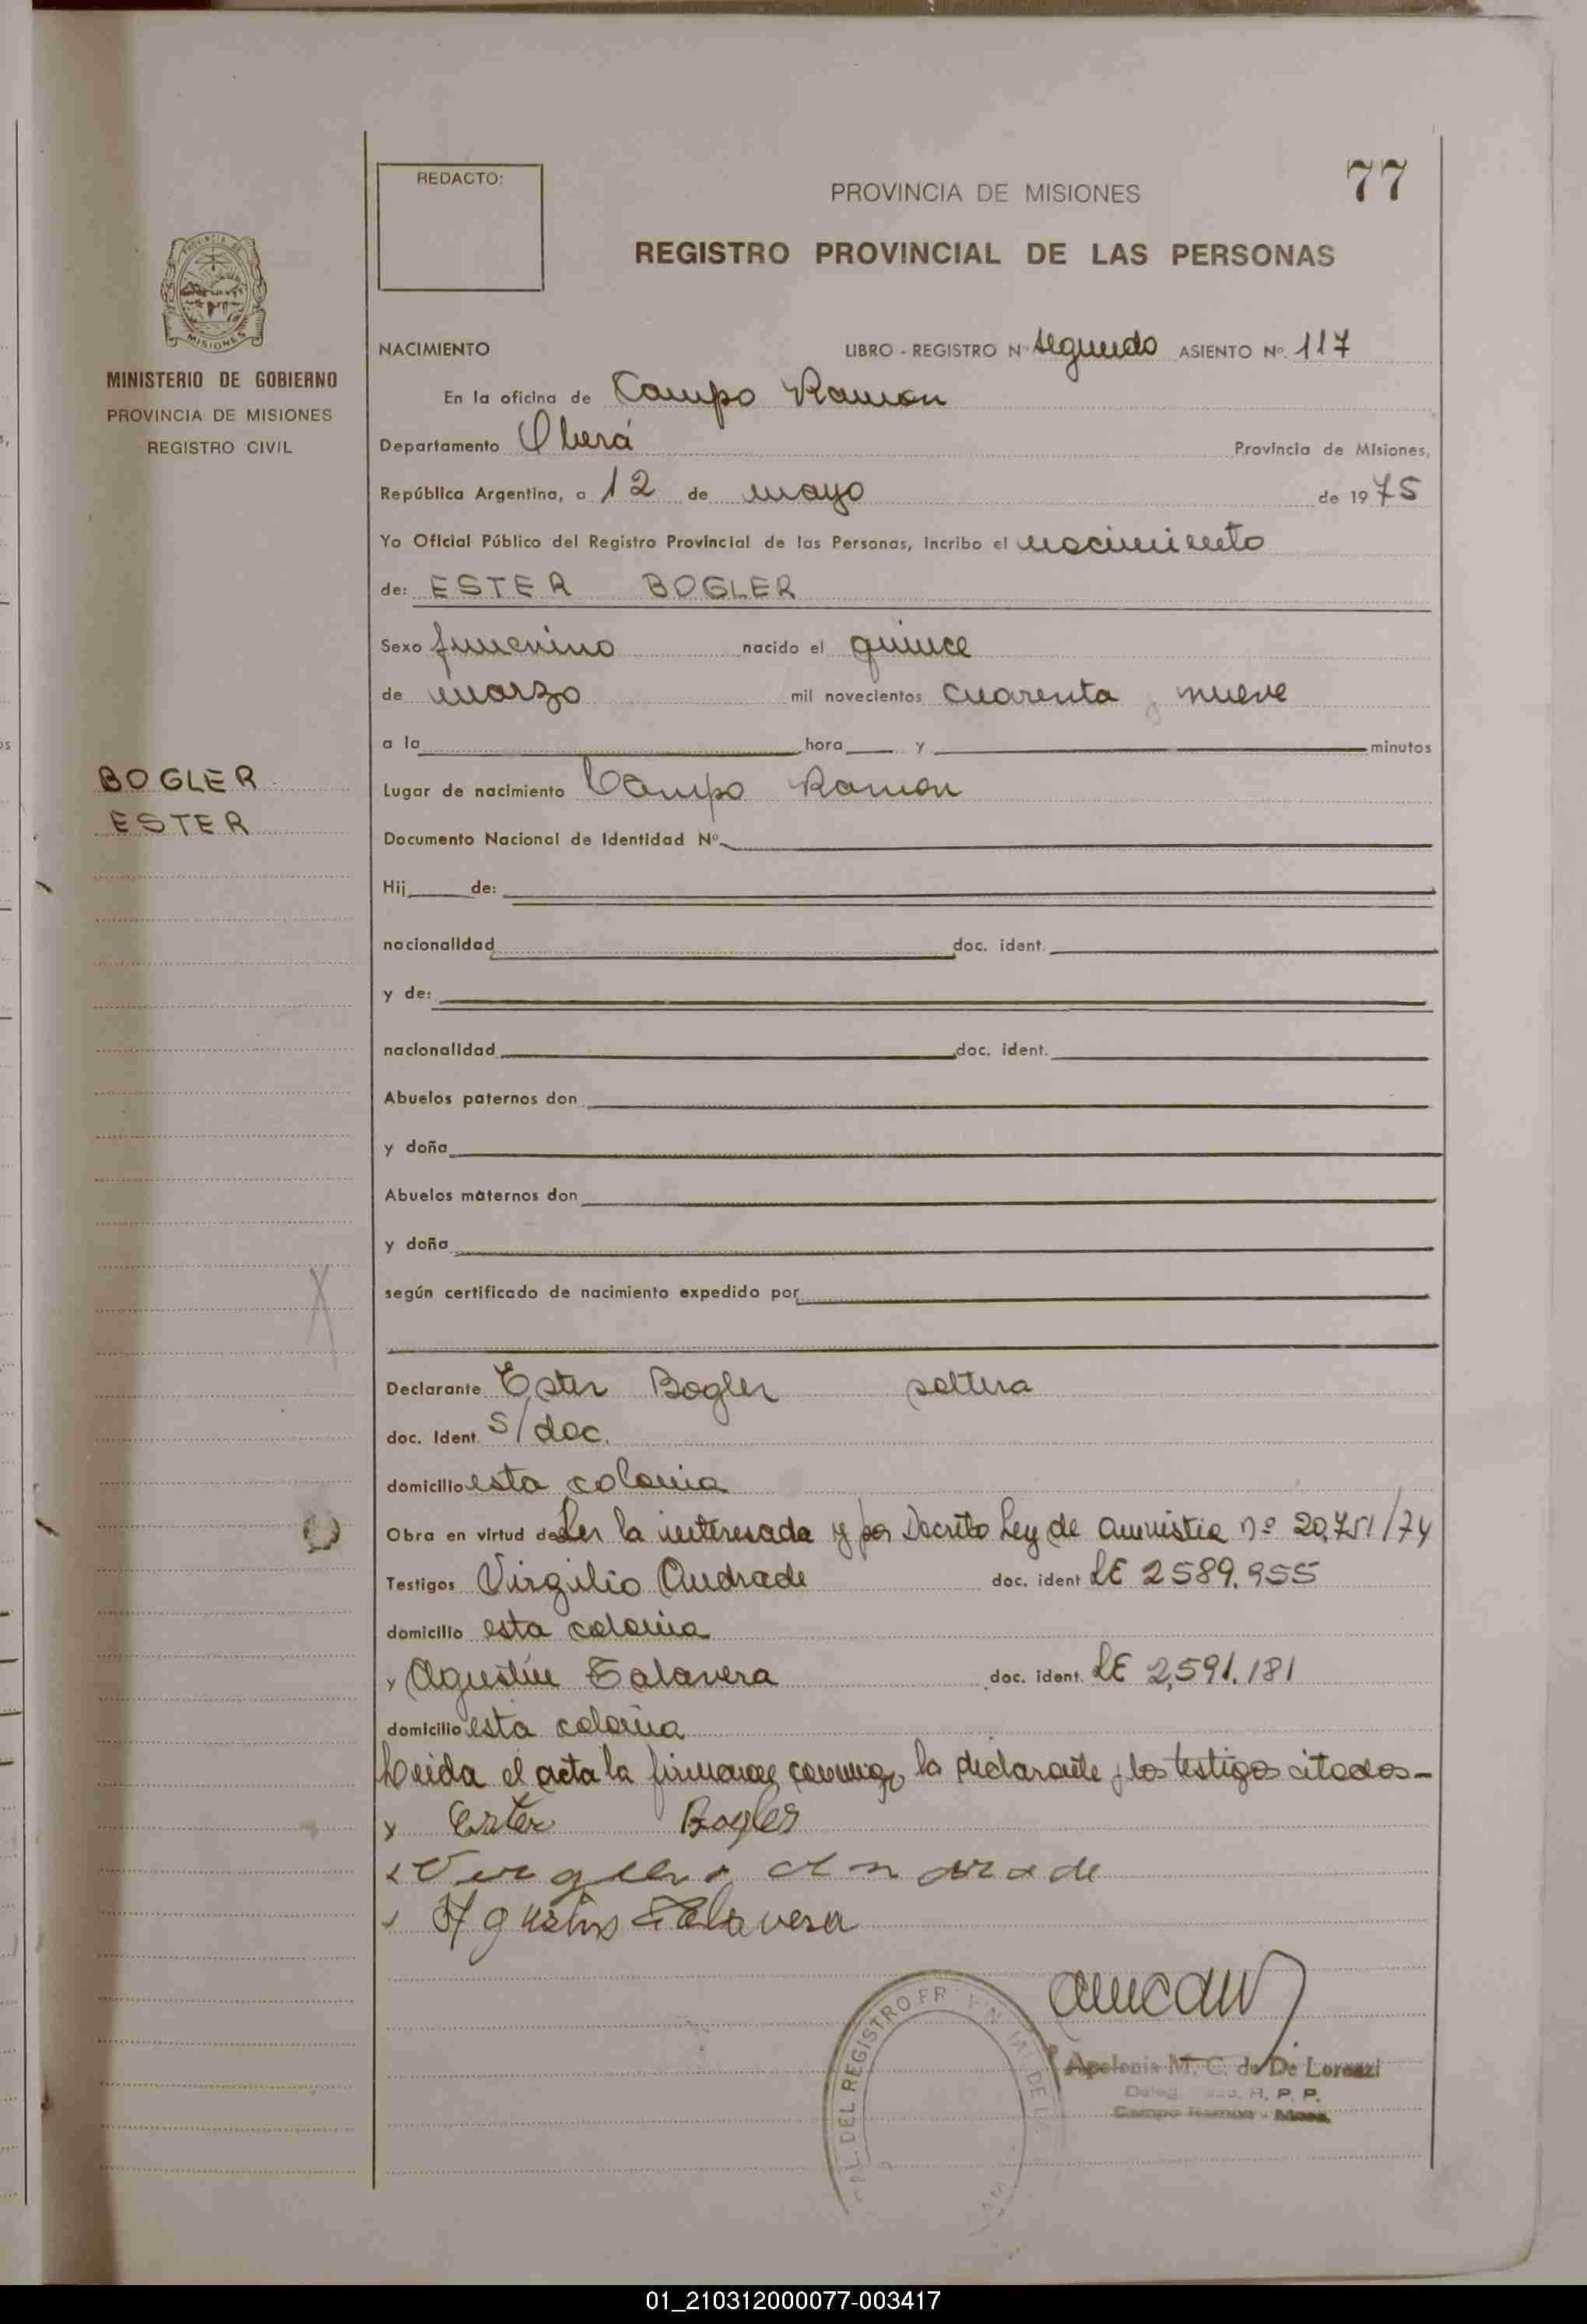 77
REDACTO:
PROVINCIA DE MISIONES
REGISTRO PROVINCIAL DE LAS PERSONAS
MISIONES
MINISTERIO DE GOBIERNO
PROVINCIA DE MISIONES
REGISTRO CIVIL
BOGLER
ESTER
NACIMIENTO LIBRO - REGISTRO Nº segundo ASIENTO Nº 117
En la oficina de Campo Ramon
Departamento Oberá Provincia de Misiones,
República Argentina, a 12 de mayo de 1975
Yo Oficial Público del Registro Provincial de las Personas, incribo el nacimiento
de: ESTER BOGLER
Sexo femenino nacido el quince
de marzo mil novecientos cuarenta y nueve
a la hora y minutos
Lugar de nacimiento Campo Ramon
Documento Nacional de Identidad Nº
Hij de:
nacionalidad doc. ident.
y de:
nacionalidad doc. ident.
Abuelos paternos don
y doña
Abuelos maternos don
y doña
según certificado de nacimiento expedido por
Declarante Ester Bogler soltera
doc. Ident. S/doc.
domicilio esta colonia
Obra en virtud de Ser la interesada y por Decreto Ley de amnistia nº 20.751/74
Testigos Virgilio Andrade doc. ident LE 2589.955
domicilio esta colonia
y Agustín Talavera doc. ident. LE 2.591.181
domicilio esta colonia
Leida el acta la firmaron conmigo la declarante y los testigos citados-
x Ester Bogler
x Virgilio Andrade
x Agustin Talavera
DEL REGISTRO
Apolonia M. C. de De Lorenzi
R. P. P.
Campo Ramon - Mnes.
01_210312000077-003417